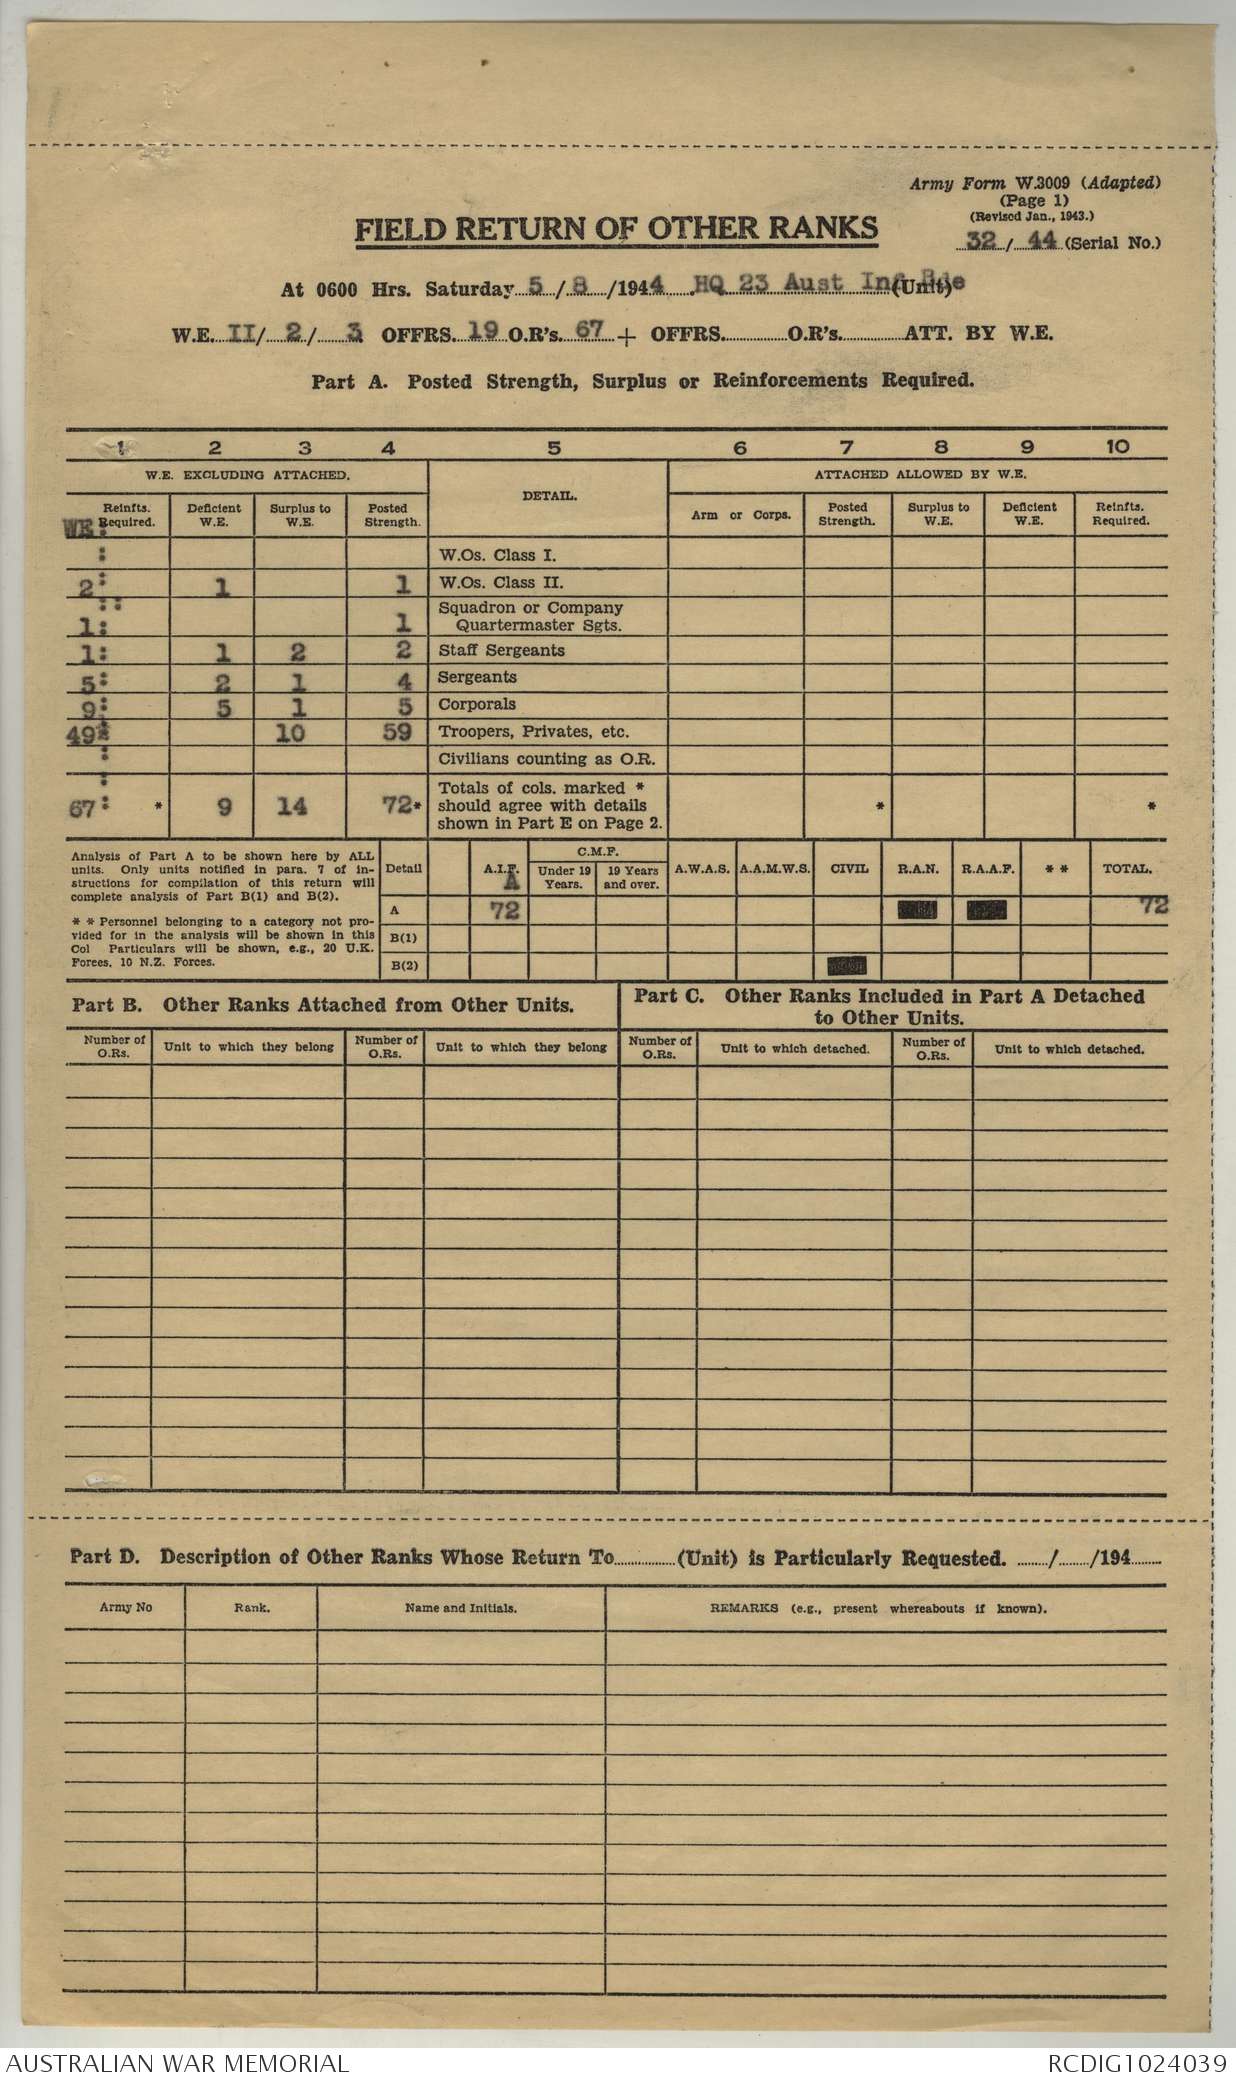 Army Form W.3009 (Adapted)
(Page 1)
(Revised Jan., 1943.)
32 / 44 (Serial No.)
FIELD RETURN OF OTHER RANKS
At 0600 Hrs. Saturday 5 / 8 /1944 HQ 23 Aust Inf Bde (Unit)
W.E. II/ 2 / 3 OFFRS. 19 O.R's. 67 + OFFRS. O.R's. ATT. BY W.E.
Part A. Posted Strength, Surplus or Reinforcements Required.
1 2 3 4 5 6 7 8 9 10
W.E. EXCLUDING ATTACHED. DETAIL. ATTACHED ALLOWED BY W.E.
Reinfts. Required. Deficient W.E. Surplus to W.E. Posted Strength. Arm or Corps. Posted Strength. Surplus to W.E. Deficient W.E. Reinfts. Required.
WE:
: W.Os. Class I.
2: 1 1 W.Os. Class II.
1: 1 Squadron or Company Quartermaster Sgts.
1: 1 2 2 Staff Sergeants
5: 2 1 4 Sergeants
9: 5 1 5 Corporals
49: 10 59 Troopers, Privates, etc.
: Civilians counting as O.R.
67: * 9 14 72* Totals of cols. marked * should agree with details shown in Part E on Page 2. * *
Analysis of Part A to be shown here by ALL
units. Only units notified in para. 7 of in-
structions for compilation of this return will
complete analysis of Part B(1) and B(2).
* * Personnel belonging to a category not pro-
vided for in the analysis will be shown in this
Col Particulars will be shown, e.g., 20 U.K.
Forces, 10 N.Z. Forces.
Detail A.I.F. C.M.F. Under 19 Years. 19 Years and over. A.W.A.S. A.A.M.W.S. CIVIL R.A.N. R.A.A.F. * * TOTAL.
A
A 72 72
B(1)
B(2)
Part B. Other Ranks Attached from Other Units.
Part C. Other Ranks Included in Part A Detached
to Other Units.
Number of O.Rs. Unit to which they belong Number of O.Rs. Unit to which they belong Number of O.Rs. Unit to which detached. Number of O.Rs. Unit to which detached.
Part D. Description of Other Ranks Whose Return To (Unit) is Particularly Requested. / /194
Army No Rank. Name and Initials. REMARKS (e.g., present whereabouts if known).
AUSTRALIAN WAR MEMORIAL RCDIG1024039